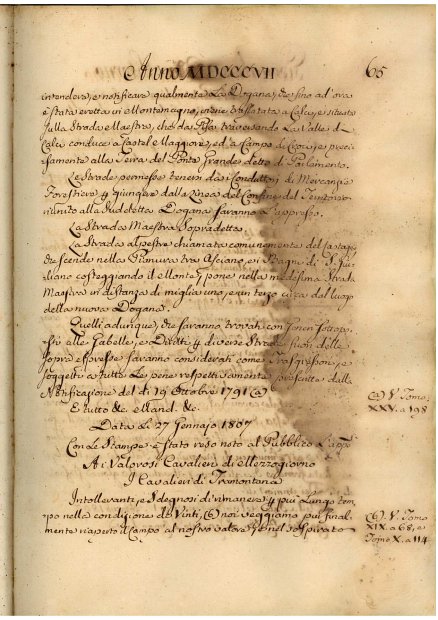 Anno MDCCCVII 65
intendere, e notificare qualmente La Dogana, che fino ad'ora
è stata eretta in Montemagno, viene traslatata a Calci, e situata
sulla Strada Maestra, che da Pisa traversando La Valle di
Calci conduce a Castel Maggiore, ed a Campo di Croci, e preci=
samente alla Terra del Ponte Grande detto di Parlamento.
Le Strade permesse tenersi dai Conduttori di Mercanzie
Forestiere per giungere dalla Linea del Confine del Territorio
riunito alla sudetta Dogana saranno L'appresso.
La Strada Maestra Sopradetta.
La Strada alpestre chiamata comunemente del
che scende nella Pianura tra Asciano, ei Bagni di S. Giu=
liano costeggiando il Monte, e pone nella medesima Strada
Maestra in distanza di miglia uno, e un terzo circa dal luogo
della nuova Dogana.
Quelli adunque, che saranno trovati con Generi sottopo=
sti alle Gabelle, e Diritti per diverse Strade fuori delle
sopra espresse saranno considerati come Trasgressori, e
soggetti a tutte Le pene respettivamente prescritte dalla
Notificazione del dì 19 Ottobre 1791 (a)
E tutto &c. e Mand. &c.
Data Li 27 Gennaio 1807
Con Le Stampe è stato reso noto al Pubblico L'app:
Ai Valorosi Cavalieri di Mezzogiorno
I Cavalieri di Tramontana
Intolleranti, e Sdegnosi di rimanere per più Lungo tem=
po nella condizione de Vinti, (b) noi veggiamo pur final=
mente riaperto il Campo al nostro valore, e nel sospirato
(a) V. Tomo
XXV. a 198
(b). V. Tomo
XIX. a 68, e
Tomo X. a 114